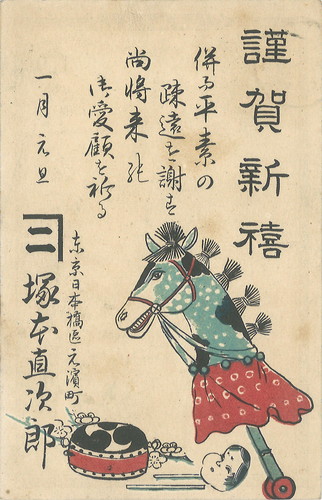 謹賀新禧
併而平素の
疎遠を謝す
尚将来北
御愛顧を祈る
一月元旦
東京日本橋区元濱町
二
塚本直次郎